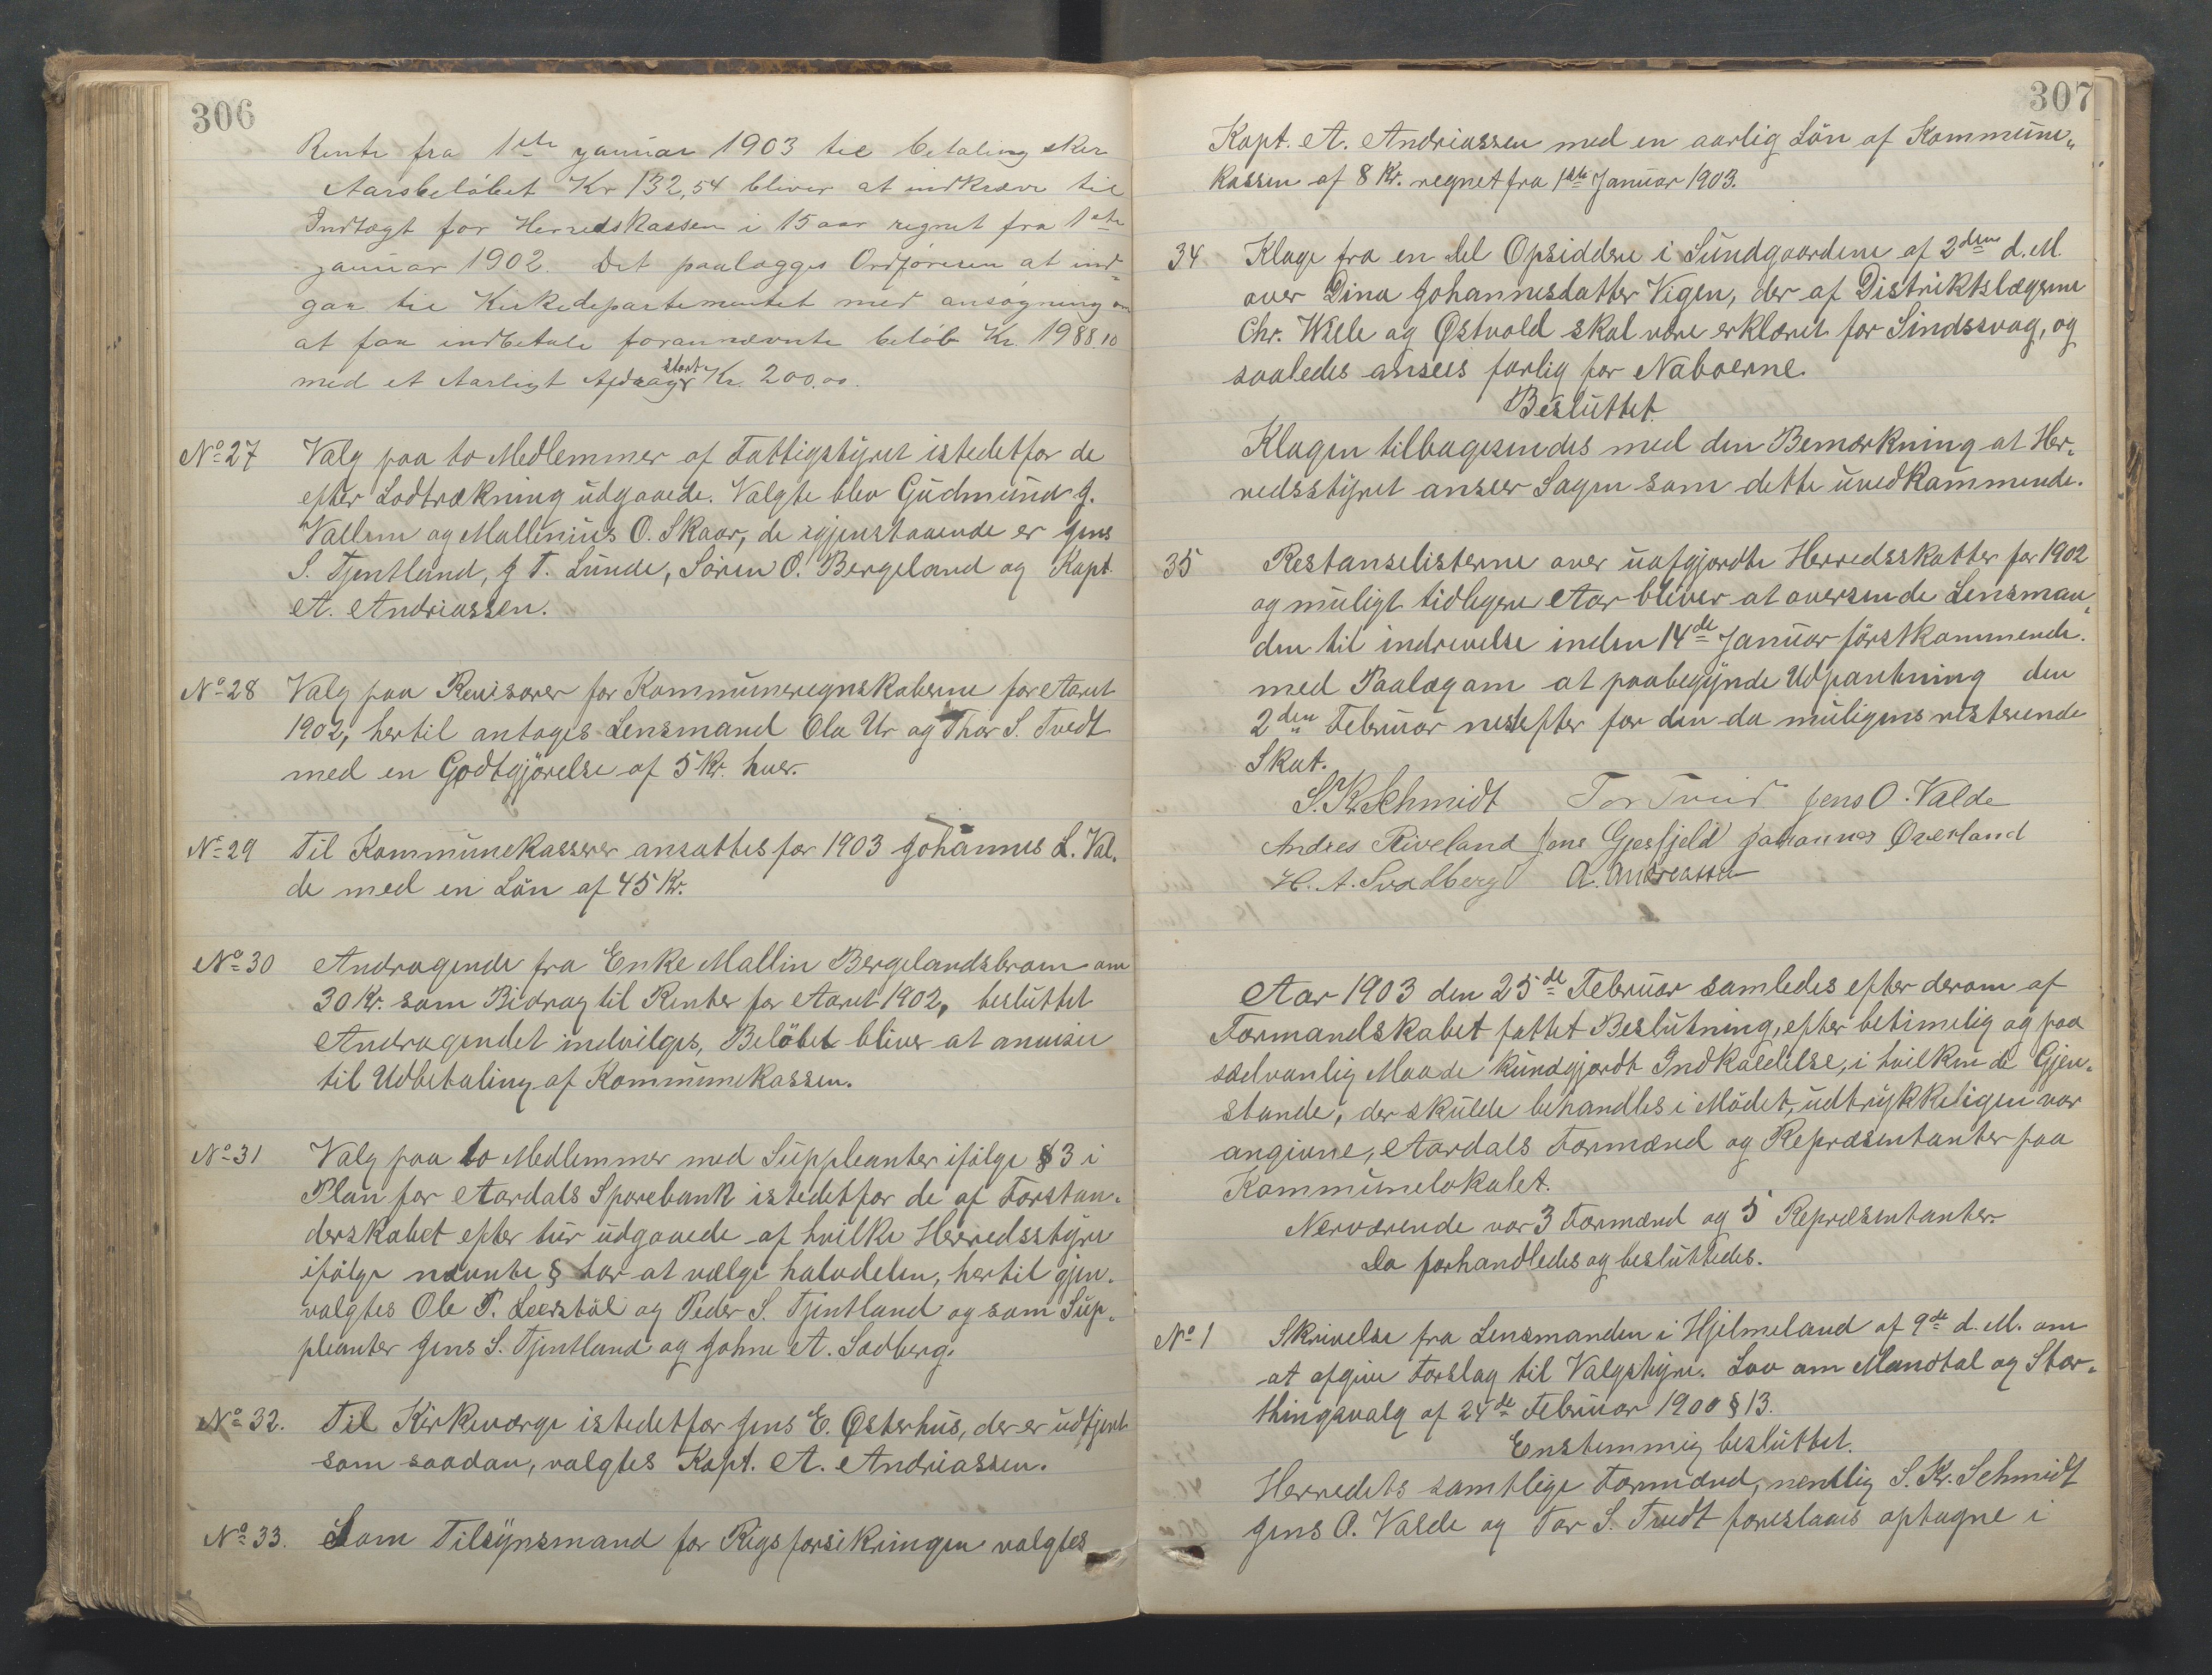 306
Rente fra 1ste januar 1903 til betaling sker
Aarsbeløbet Kr 132,54 bliver at indkræve til
Indtægt for Herredskassen i 15 aar regnet fra 1ste
januar 1902. Det paalægges Ordføreren at ind-
gaa til Kirkedepartementet med ansøgning om
at faa indbetale forannævnte beløb Kr. 1988.10
med et Aarligt Afdrag stort Kr. 200.00.
No 27 Valg paa to Medlemmer af Fattigstyret istedetfor de
efter Lodtrækning udgaaede. Valgte blev Gudmund J.
Vallem og Mallenius O. Skaar, de igjenstaaende er Jens
S. Tjentland, J T. Lunde, Sören O. Bergeland og Kapt.
A. Andriassen.
No 28 Valg paa Revisorer for Kommuneregnskaberne for Aaret
1902, hertil antages Lensmand Ola Ur og Thor S. Tvedt
med en Godtgjörelse af 5 Kr. hver.
No 29 Til Kommunekasserer ansattes for 1903 Johannes L. Val-
de med en Lön af 45 Kr.
No 30 Andragende fra Enke Mallin Bergelandsbraen om
30 Kr. som Bidrag til Renter for Aaret 1902, besluttet
Andragendet indvilges, Belöbet bliver at anvise
til Udbetaling af Kommunekassen.
No 31 Valg paa to Medlemmer med Suppleanter ifölge § 3 i
Plan for Aardals Sparebank istedetfor de af Forstan-
derskabet efter tur udgaaede af hvilke Herredsstyre
ifölge nævnte § har at vælge halvdelen, hertil gjen-
valgtes Ole P. Leerstöl og Peder S. Tjentland og som Sup-
pleanter Jens S. Tjentland og Johne A. Sadberg.
No 32. Til Kirkeværge istedetfor Jens E. Østerhus, der er udtjent
som saadan, valgtes Kapt. A. Andriassen.
No 33. Som Tilsynsmand for Rigsforsikringen valgtes
307
Kapt. A. Andriassen med en aarlig Lön af Kommune-
kassen af 8 Kr. regnet fra 1ste Januar 1903.
34 Klage fra en del Opsiddere i Sundgaardene af 2den d.M.
over Dina Johannesdatter Vigen, der af Distriktslægerne
Chr. Wiele og Østvold skal være erklæret for Sindssvag, og
saaledes ansees farlig for Naboerne.
Besluttet
Klagen tilbagesendes med den Bemærkning at Her-
redsstyret anseer Sagen som dette uvedkommende.
35 Restanselisterne over uafgjordte Herredsskatter for 1902
og muligt tidligere Aar bliver at oversende Lensman-
den til indrevelse inden 14de Januar förstkommende.
med Paalæg om at paabegynde Udpantning den
2den Februar næstefter for den da muligens resterende
Skat.
S. K. Schmidt Tor Tveid Jens O. Valde
Andres Riveland Jone Gjesfjeld Johannes Øverland
H. A. Svadberg A. Andreassen
Aar 1903 den 25de Februar samledes efter derom af
Formandskabet fattet Beslutning, efter betimelig og paa
sædvanlig Maade kundgjordt Indkaldelse, i hvilken de Gjen-
stande, der skulde behandles i Mödet, udtrykkeligen var
angivne, Aardals Formænd og Repræsentanter paa
Kommunelokalet.
Nerværende var 3 Formænd og 5 Repræsentanter.
Da forhandledes og besluttedes.
No 1 Skrivelse fra Lensmanden i Hjelmeland af 9de d. M. om
at afgive Forslag til Valgstyre. Lov om Mandtal og Stor-
thingsvalg af 24de Februar 1900 § 13.
Enstemmig besluttet.
Herredets samtlige Formænd, nemlig S. Kr. Schmidt
Jens O. Valde og Tor S. Tvedt foreslaaes optagne i